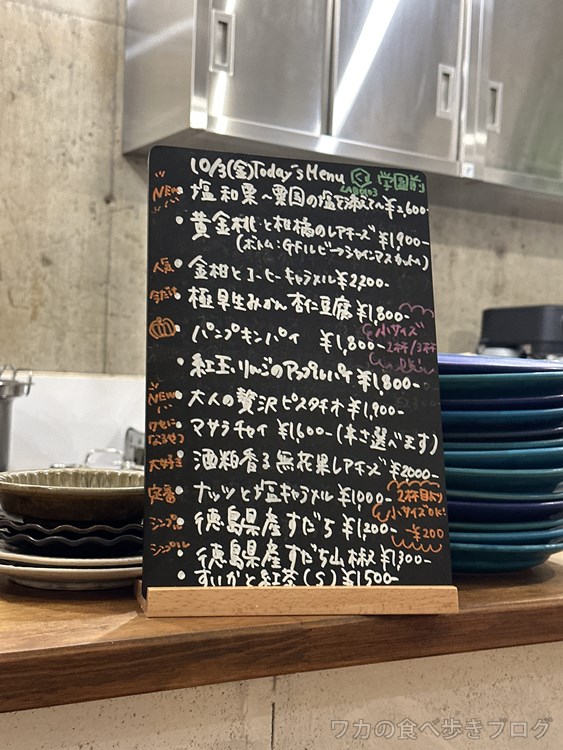 10/3(金)Today's Menu LABO103 学園前
NEW 塩和栗〜粟国の塩を添えて〜¥2,600-
黄金桃と柑橘のレアチーズ ¥1,900-
(ボトム:GFルビー→シャインマスカットへ)
人気 金柑とコーヒーキャラメル¥2,200-
今だけ 極早生みかん 杏仁豆腐 ¥1,800-
パンプキンパイ ¥1,800-
小サイズ
2杯/3杯
紅玉りんごのアップルパイ ¥1,800-
NEW 大人の贅沢ピスタチオ ¥1,900-
クセになるやつ マサラチャイ ¥1,600-(辛さ選べます)
大好き 酒粕香る無花果レアチーズ ¥2,000-
定番 ナッツと塩キャラメル ¥1,000-
2杯目より
小サイズOK!
-¥200
シンプル 徳島県産すだち ¥1,200-
シンプル 徳島県産すだち山椒 ¥1,300-
すいかと紅茶(S) ¥1,500-
ワカの食べ歩きブログ